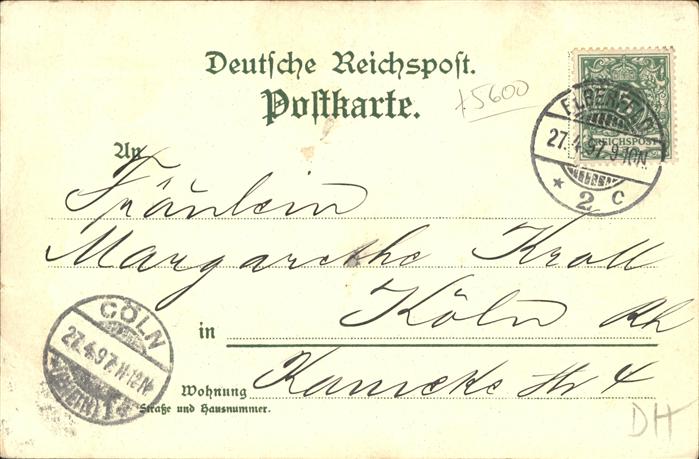 Deutsche Reichspost.
Postkarte.
+5600
REICHSPOST
ELBERFELD
27.4.97.9-10N.
* 2 c
An
Fräulein
Margarethe Kroll
in Köln Rh
Wohnung Kameke Str 4
Straße und Hausnummer.
CÖLN
27.4.97.11-12N.
DH